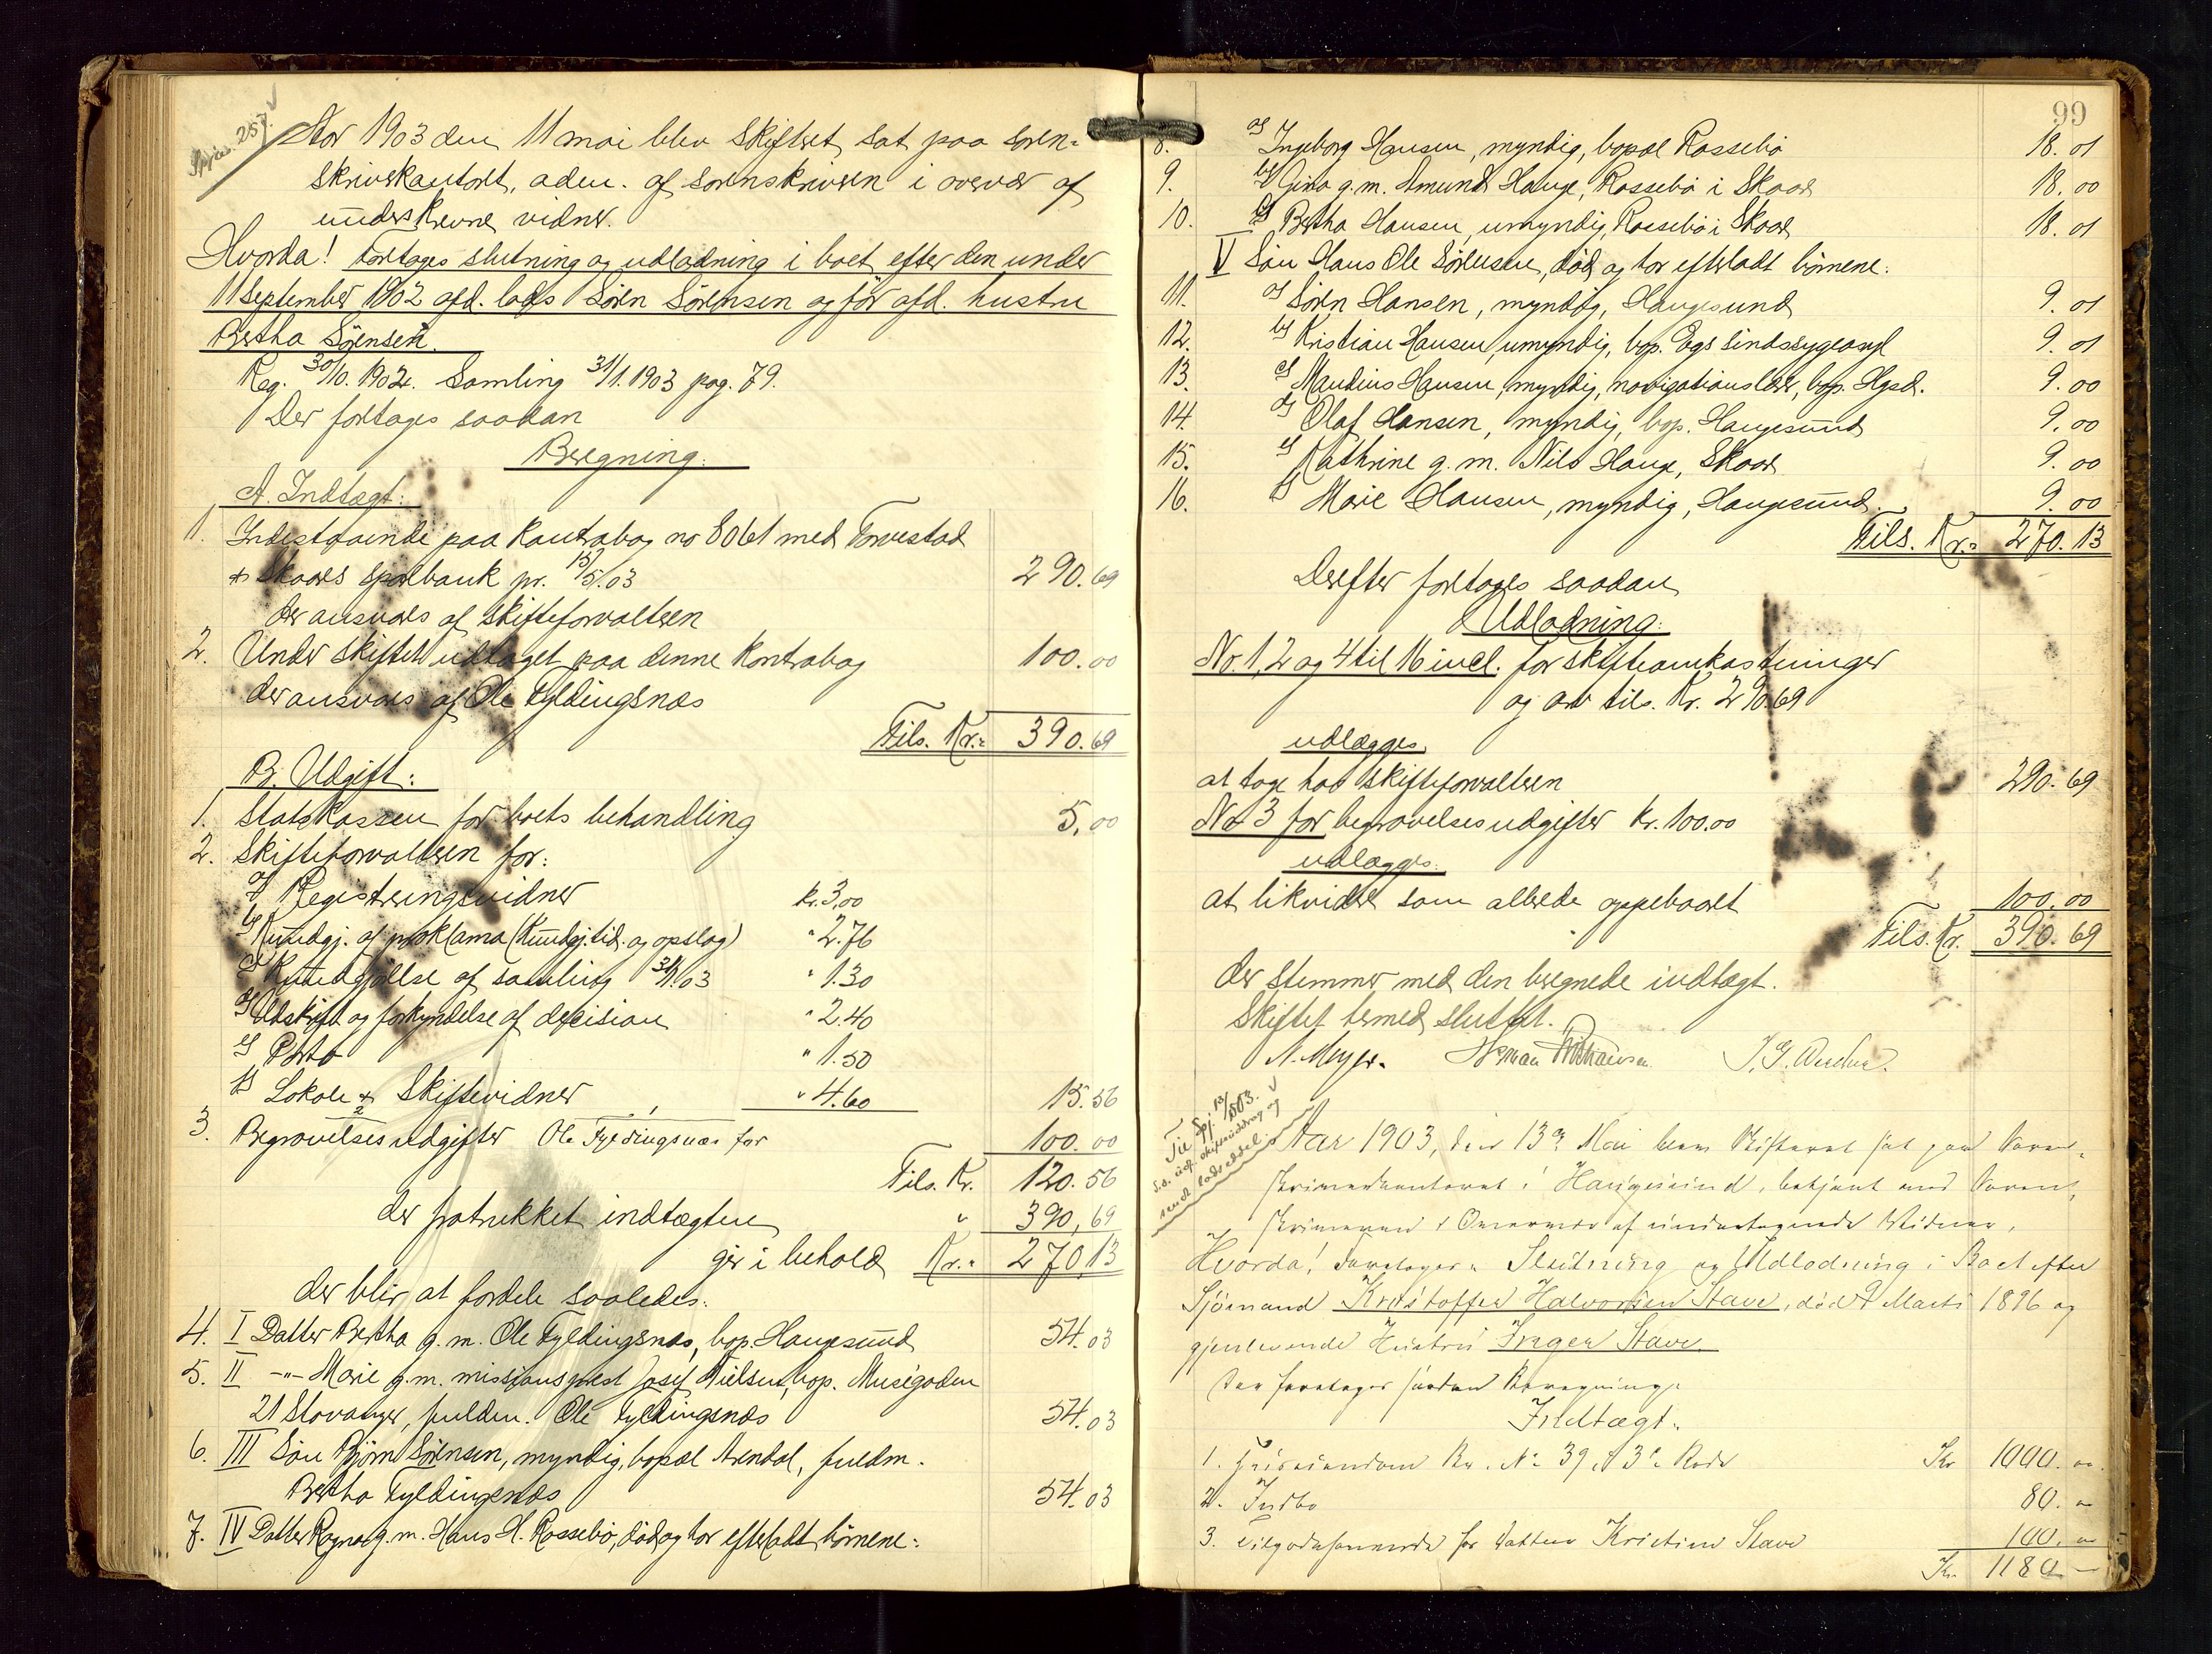 Aar 1903 den 11 mai blev skifteret sat paa soren-
skriverkontoret, adm. af sorenskriveren i overvær af
underskrevne vidner.
Hvorda! foretages slutning og udlodning i boet efter den under
11 September 1902 afd. lods Sören Sörensen og før afd. hustru
Bertha Sörensen.
Reg. 30/10. 1902. Samling 31/1. 1903 pag. 79.
Der foretages saadan
Beregning:
A. Indtægt:
1. Indestaaende paa Kontrabog no 8061 med Torvestad
& Skaares sparebank pr. 15/5.03 290.69
der ansvares af skifteforvalteren
2. Under skiftet udtaget paa denne Kontrabog 100.00
der ansvares af Ole Fyldingsnæs
Tils. Kr.= 390.69
B. Udgift:
1. Statskassen for boets behandling 5.00
2. Skifteforvalteren for:
a) Registreringsvidner kr. 3,00
b) Kundgj. af proklama (Kundgj.tid. og opslag) " 2.76
c) Kundgjörelse af samling 31/1.03 " 1.30
d) Udskrift og forkyndelse af decision " 2.40
e) Porto " 1.50
f) Lokale & Skiftevidner " 4.60 15.56
3. Begravelsesudgifter Ole Fyldingsnæs for 100.00
Tils. Kr. 120.56
der fratrukket indtægten " 390,69
gir i behold Kr.= 270,13
der blir at fordele saaledes:
4. I Datter Bertha g.m. Ole Fyldingsnæs, bop. Haugesund 54.03
5. II -"- Marie g.m. missionsprest Josef Nielsen, bop. Muségaden
21 Stavanger, fuldm. Ole Fyldingsnæs 54.03
6. III Sön Björn Sörensen, myndig, bopæl Arendal, fuldm.
Bertha Fyldingsnæs 54.03
7. IV Datter Ragna g.m. Hans H. Rossebö, död og har efterladt börnene:
99
8. a) Ingeborg Hansen, myndig, bopæl Rossebö 18.01
9. b) Gina g.m. Amund Hauge, Rossebö i Skaare 18.00
10. c) Bertha Hansen, umyndig, Rossebö i Skaare 18.01
V Sön Hans Ole Sörensen, död og har efterladt börnene:
11. a) Sören Hansen, myndig, Haugesund 9.01
12. b) Kristian Hansen, umyndig, bop. Egs sindssygeasyl 9.01
13. c) Maudius Hansen, myndig, navigationslærer, bop. Hgsd. 9.00
14. d) Olaf Hansen, myndig, bop. Haugesund 9,00
15. e) Kathrine g.m. Nils Hauge, Skaare 9.00
16. f) Marie Hansen, myndig, Haugesund. 9.00
Tils. Kr.= 270.13
Derefter foretages saadan
Udlodning:
No. 1, 2 og 4 til 16 incl. for skifteomkostninger
og arv tils. Kr. 290.69
udlægges
at tage hos skifteforvalteren 290.69
No 3 for begravelsesudgifter Kr. 100.00
udlægges:
at likvidere som allerede oppebaaret 100.00
Tils. Kr. 390.69
der stemmer med den beregnede indtægt.
Skiftet hermed sluttet.
N. Meyer.
Aar 1903, den 13de Mai blev Skifteret sat paa Soren-
skriverkontoret i Haugesund, betjent ved Soren-
skriveren i Overvær af undertegnede Vidner.
Hvorda! Foretoges Slutning og Udlodning i Boet efter
Sjömand Kristoffer Halvorsen Stave, død 9 Marts 1896 og
gjenlevende Hustru Inger Stave.
Der foretoges saadan Beregning:
Indtægt:
1. Huseiendom Br. No 39 i 3die Rode Kr 1000.00
2. Indbo 80.00
3. Tilgodehavende hos Datter Kristine Stave 100.00
Kr. 1180 -